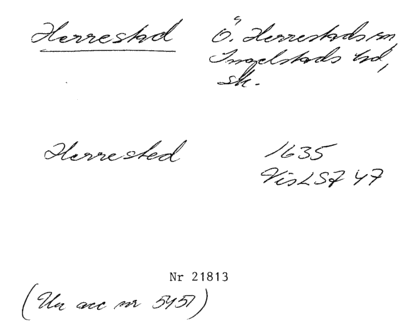 Herrestad Ö. Herrestads sn,
Ingelstads hd,
Sk.
Herrested 1635
VisLSF 47
Nr 21813
(Ur acc nr 5951)